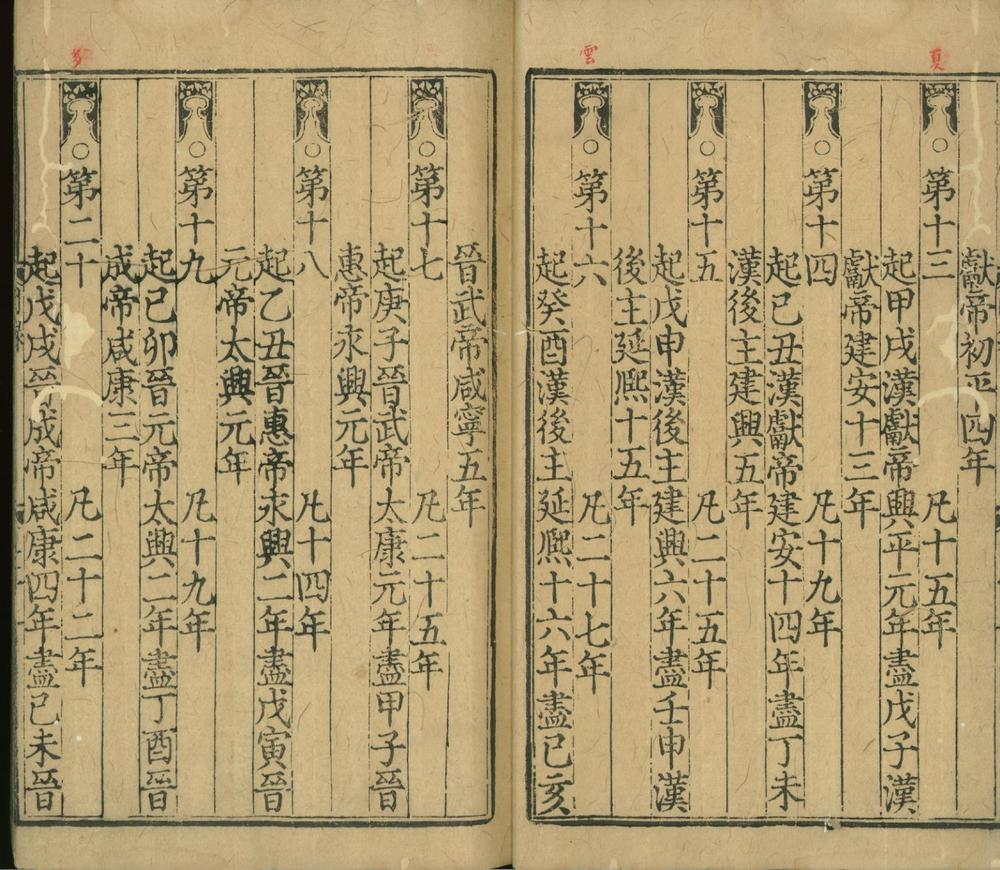 獻帝初平四年
○第十三 凡十五年
起甲戌漢獻帝興平元年盡戊子漢
獻帝建安十三年
○第十四 凡十九年
起己丑漢獻帝建安十四年盡丁未
漢後主建興五年
○第十五 凡二十五年
起戊申漢後主建興六年盡壬申漢
後主延熈十五年
○第十六 凡二十七年
起癸酉漢後主延熈十六年盡己亥
晉武帝咸寧五年
○第十七 凡二十五年
起庚子晉武帝太康元年盡甲子晉
惠帝永興元年
○第十八 凡十四年
起乙丑晉惠帝永興二年盡戊寅晉
元帝太興元年
○第十九 凡十九年
起己卯晉元帝太興二年盡丁酉晉
成帝咸康三年
○第二十 凡二十二年
起戊戌晉成帝咸康四年盡己未晉